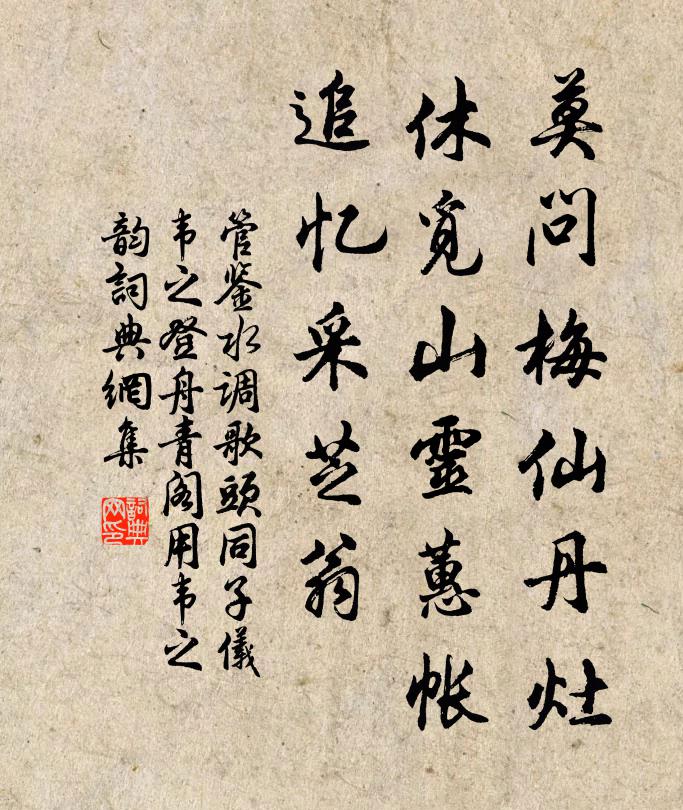 莫问梅仙丹灶
休觅山靈蕙帐
追忆采芝翁
管鉴水调歌頭同子儀
韦之登舟青阁用韦之
韵詞典網集
詞典
网印